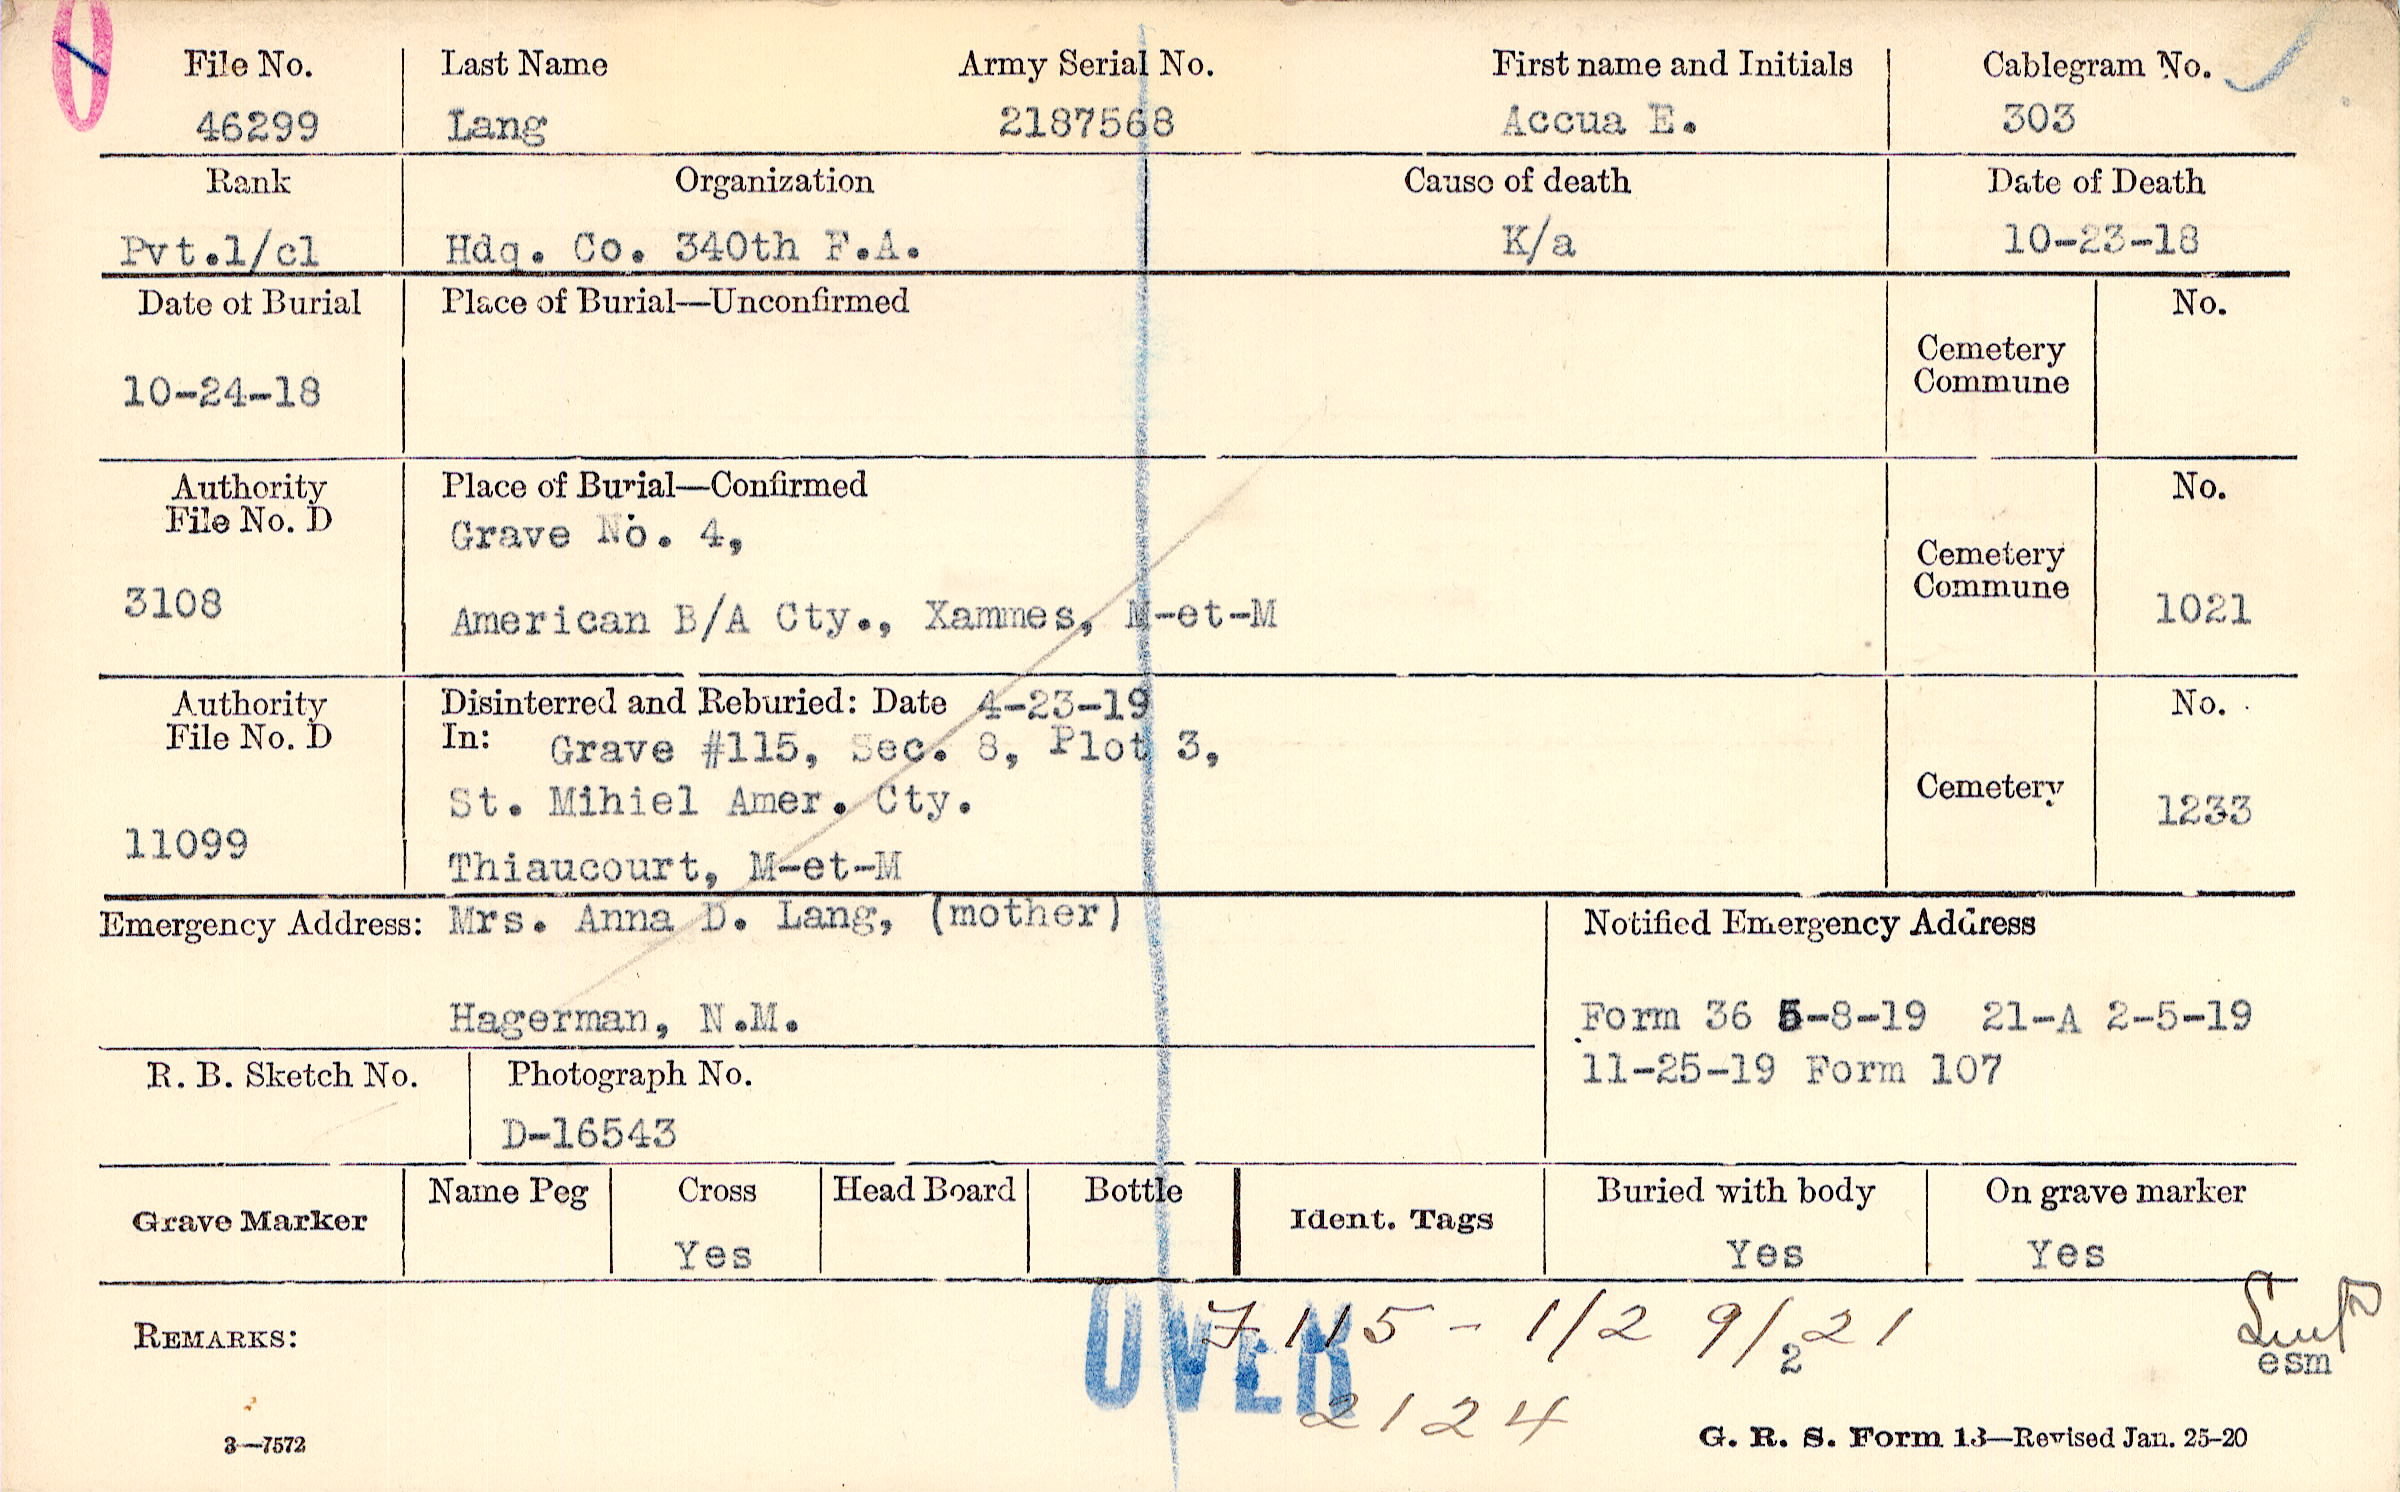 File No. Last Name Army Serial No. First name and Initials Cablegram No.
46299 Lang 2187568 Accua E. 303
Rank Organization Cause of death Date of Death
Pvt.1/cl Hdq. Co. 340th F.A. K/a 10-23-18
Date of Burial Place of Burial—Unconfirmed No.
Cemetery
Commune
10-24-18
Authority Place of Burial—Confirmed No.
File No. D Grave No. 4,
Cemetery
Commune
3108 American B/A Cty., Xammes, M-et-M 1021
Authority Disinterred and Reburied: Date 4-23-19 No.
File No. D In: Grave #115, Sec. 8, Plot 3,
St. Mihiel Amer. Cty. Cemetery 1233
11099 Thiaucourt, M-et-M
Emergency Address: Mrs. Anna D. Lang, (mother) Notified Emergency Address
Hagerman, N.M. Form 36 5-8-19 21-A 2-5-19
R. B. Sketch No. Photograph No. 11-25-19 Form 107
D-16543
Grave Marker Name Peg Cross Head Board Bottle Ident. Tags Buried with body On grave marker
Yes Yes Yes
REMARKS: OVER 115 - 1/2 9/21
2 esm
2124
3—7572 G. R. S. Form 13—Revised Jan. 25-20